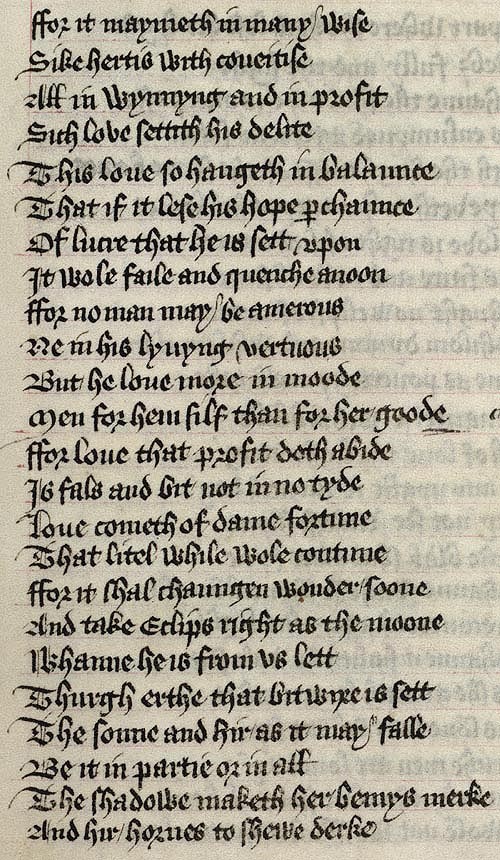 ffor it maymeth in many wise
Sike hertis with coueitise
All in wynnyng and in profit
Sich love settith his delite
This loue so hangeth in balaunce
That if it lese his hope ꝑchaunce
Of lucre that he is sett vpon
It wole faile and quenche anoon
ffor no man may be amerous
Ne in his lyuyng vertuous
But he loue more in moode
Men for hem silf than for her goode
ffor loue that profit deth abide
Is fals and bit not in no tyde
Loue cometh of dame fortune
That litel while wole contune
ffor it shal chaungen wonder soone
And take Eclips right as the moone
Whanne he is from vs lett
Thurgh erthe that bitwixe is sett
The sonne and hir as it may falle
Be it in partie or in all
The shadowe maketh her bemys merke
And hir hornes to shewe derke